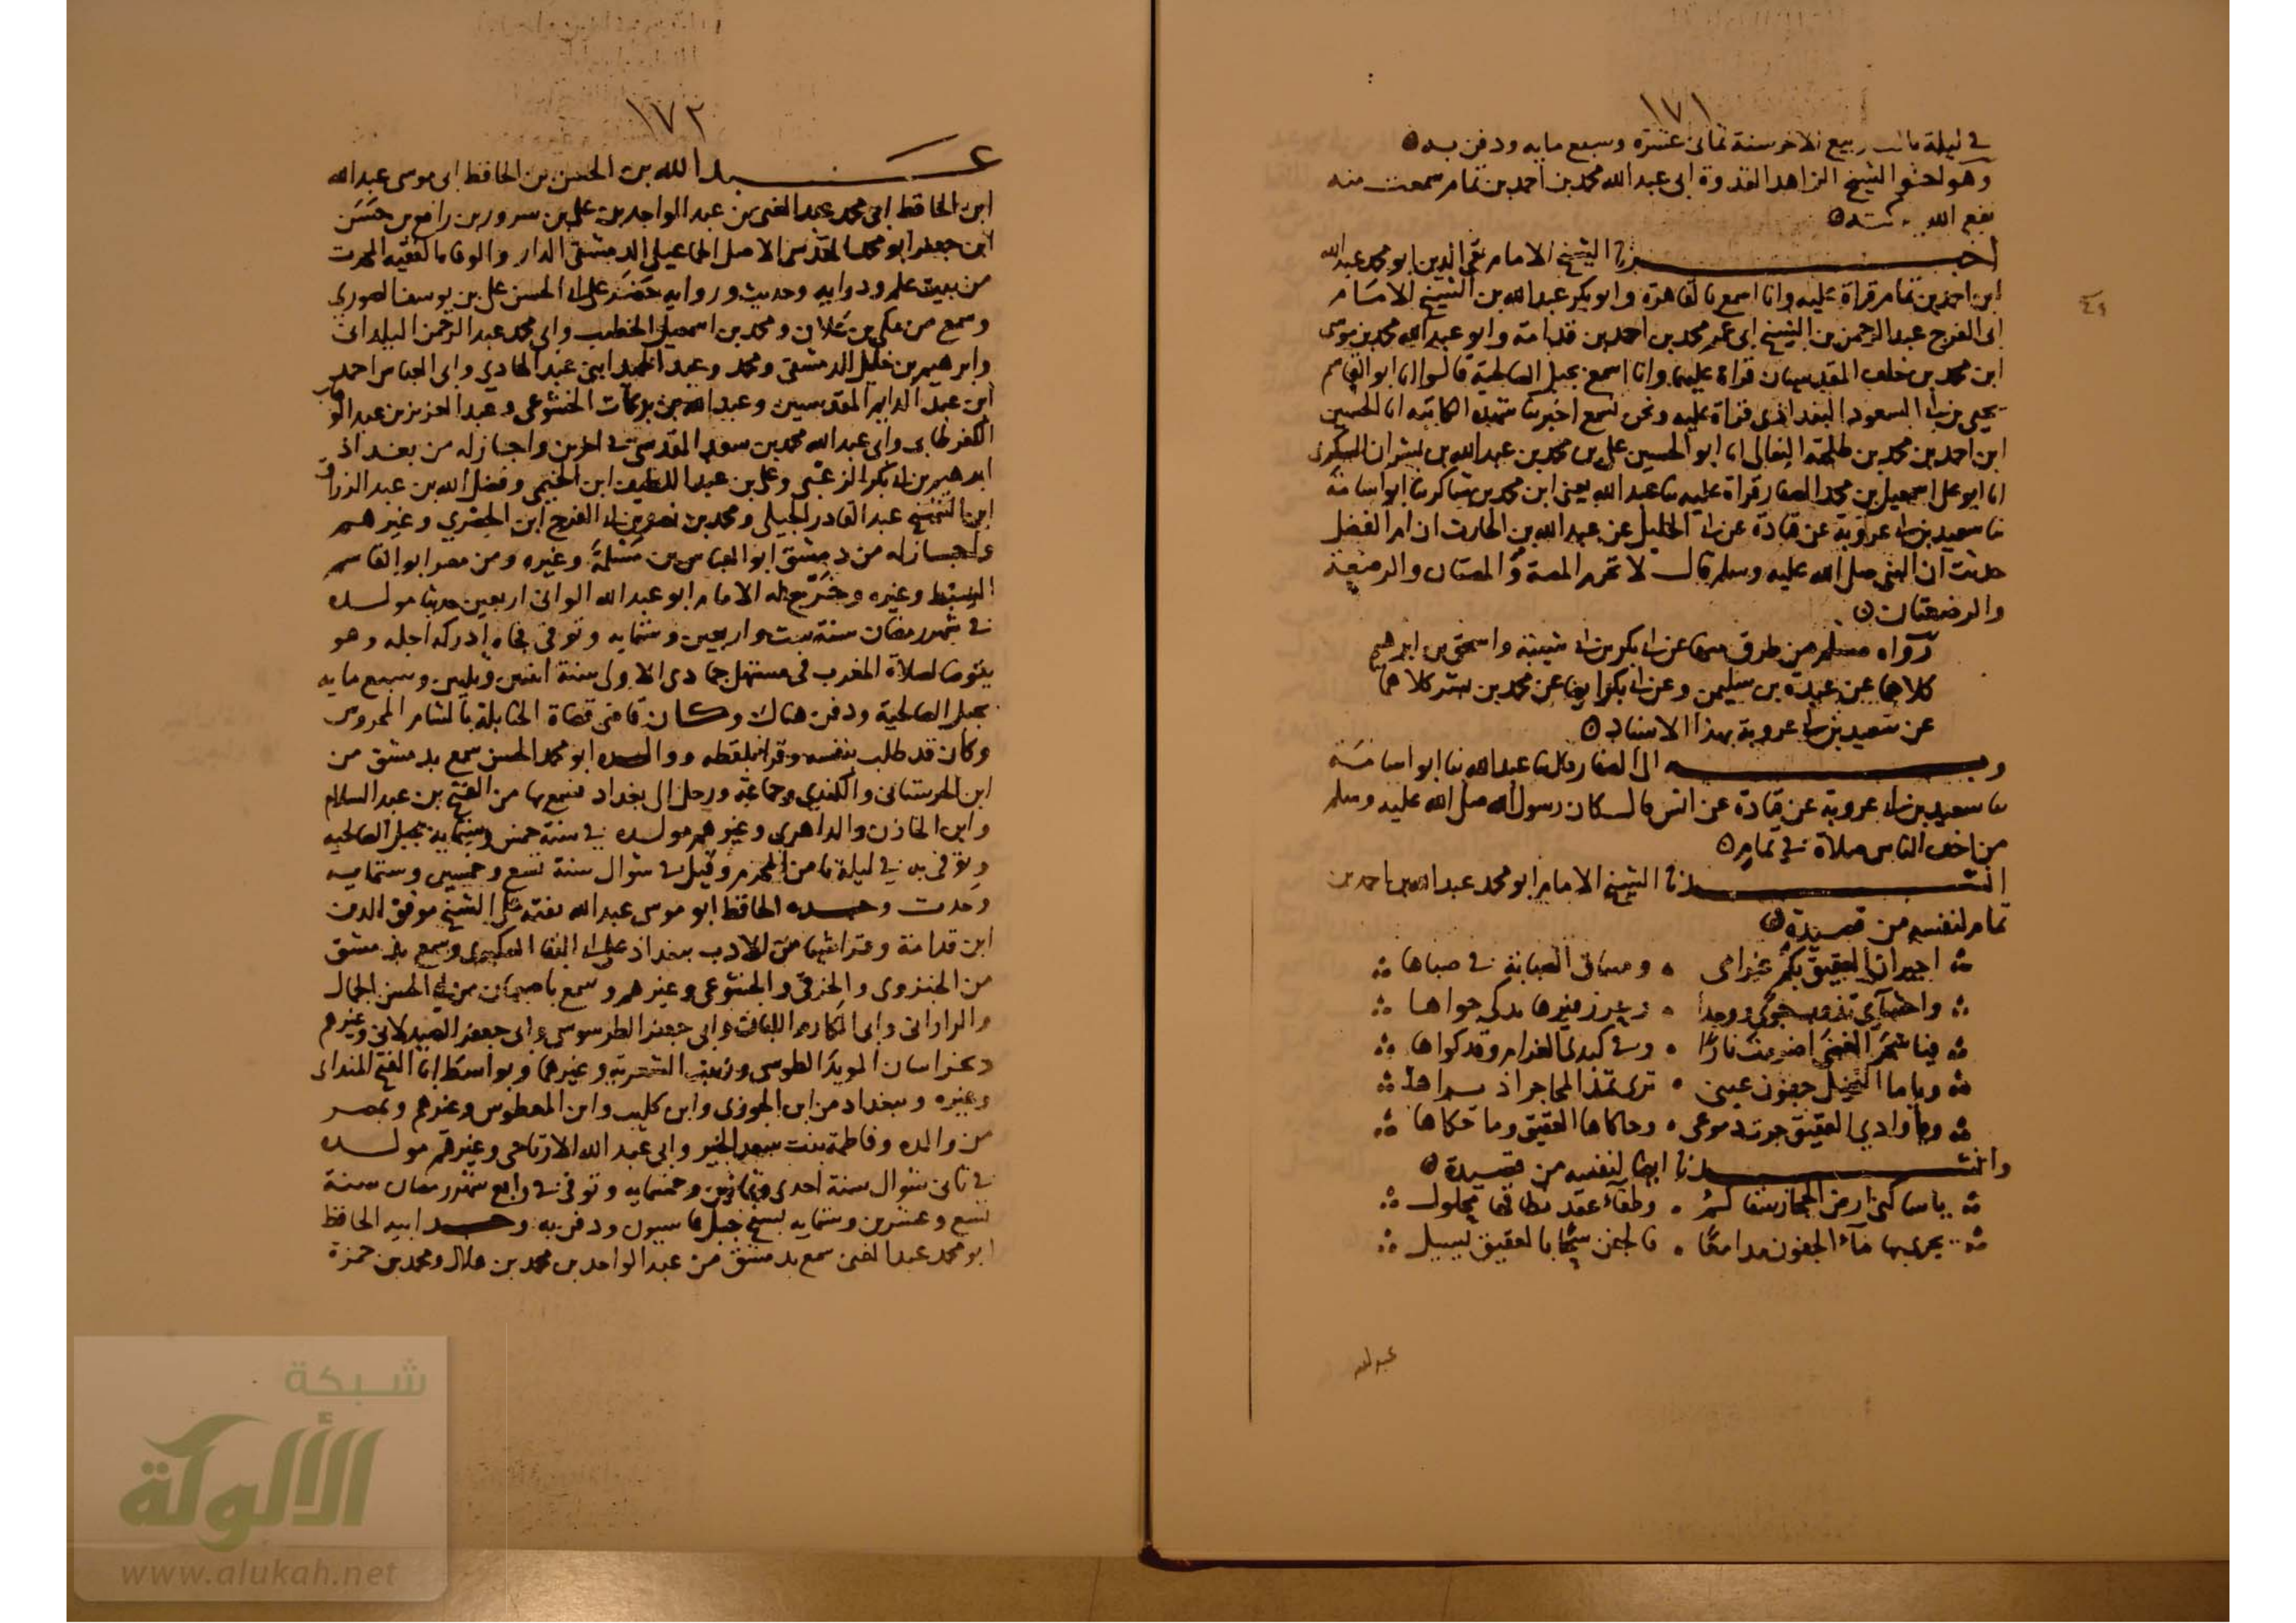 ١٧١
في ليلة ثالث ربيع الاخر سنة ثماني عشرة وسبع مايه ودفن به
وهو اخو الشيخ الزاهد القدوة ابي عبد الله محمد بن احمد بن تمام سمعت منه
نفع الله
اخبرنا الشيخ الامام تقي الدين ابو محمد عبد الله
ابن احمد بن تمام قراة عليه وانا اسمع بالقاهرة وابو بكر عبد الله بن الشيخ الامام
ابي الفرج عبد الرحمن بن الشيخ ابي عمر محمد بن احمد بن قدامة وابو عبد الله محمد بن موسى
ابن محمد بن خلف المقدسيان قراة عليهما وانا اسمع بجبل الصالحية قالوا انا ابو القاسم
يحيى بن ابي السعود البغدادي قراة عليه ونحن نسمع اخبرتنا شهدة الكاتبه انا الحسين
ابن احمد بن محمد بن طلحة النعالي انا ابو الحسين علي بن محمد بن عبد الله بن بشران السكري
انا ابو علي اسمعيل بن محمد الصفار قراة عليه ثنا عبد الله يعني ابن محمد بن شاكر ثنا ابو اسامة
ثنا سعيد بن ابي عروبة عن قتادة عن ابي الخليل عن عبد الله بن الحارث ان ام الفضل
حدثت ان النبي صلى الله عليه وسلم قال لا تحرم المصة والمصتان والرضعة
والرضعتان
رواه مسلم من طرق منها عن ابي بكر بن ابي شيبة واسحق بن ابرهيم
كلاهما عن عبدة بن سليمن وعن ابي بكر ايضا عن محمد بن بشر كلاهما
عن سعيد بن ابي عروبة بهذا الاسناد
وبه الى الصفار قال ثنا عبد الله ثنا ابو اسامة
ثنا سعيد بن ابي عروبة عن قتادة عن انس قال كان رسول الله صلى الله عليه وسلم
من اخف الناس صلاة في تمام
انشدنا الشيخ الامام ابو محمد عبد الله بن احمد بن
تمام لنفسه من قصيدة
اجيران العقيق بكم غرامي ٥ في صباها
واحشاي تذوب جوى ووجدا
فيا شجر الغضى اضرمت نارا ٥ وفي كبدي الغرام وقد كواها
ويا ما النخيل جفون عيني ٥ ترى
ويا وادي العقيق جرت دموعي ٥ وحاكاها العقيق وما حكاها
وانشدنا ايضا لنفسه من قصيدة
يا ساكني ارض الحجاز ٥ محلول
يجري بها ماء الجفون مدامعا ٥ بالعقيق يسيل
عبد الله
١٧٢
عبد الله بن الحسن بن الحافظ ابي موسى عبد الله
ابن الحافظ ابي محمد عبد الغني بن عبد الواحد بن علي بن سرور بن رافع بن حسن
ابن جعفر ابو محمد المقدسي الاصل الجماعيلي الدمشقي الدار والوفاه الفقيه المحدث
من بيت علم ودرايه وحديث وروايه حضر على ابي الحسن علي بن يوسف الصوري
وسمع من مكي بن علان ومحمد بن اسمعيل الخطيب وابي محمد عبد الرحمن البلداني
وابرهيم بن خليل الدمشقي ومحمد وعبد الحميد ابني عبد الهادي وابي العباس احمد
ابن عبد الدايم المقدسيين وعبد الله بن بركات الخشوعي وعبد العزيز بن عبد الوهاب
الكفرطابي وابي عبد الله محمد بن سعد المقدسي في اخرين واجاز له من بغداد
ابرهيم بن ابي بكر الزعبي وعلي بن عبد اللطيف ابن الخيمي وفضل الله بن عبد الرزاق
ابن الشيخ عبد القادر الجيلي ومحمد بن نصر بن ابي الفرج ابن الحصري وغيرهم
واجاز له من دمشق ابو العباس بن مسلمة وغيره ومن مصر ابو القاسم
السبط وغيره وخرج له الامام ابو عبد الله الواني اربعين حديثا مولده
في شهر رمضان سنة ست واربعين وستمايه وتوفي فجاه ادركه اجله وهو
يتوضا لصلاة المغرب في مستهل جمادى الاولى سنة اثنين وثلثين وسبع مايه
بجبل الصالحية ودفن هناك وكان قاضي قضاة الحنابلة بالشام المحروس
وكان قد طلب بنفسه وقرا بلفظه ووالده ابو محمد الحسن سمع بدمشق من
ابن الحرستاني والكندي وجماعة ورحل الى بغداد فسمع بها من الفتح بن عبد السلام
وابن الخازن والداهري وغيرهم مولده في سنة خمس وستمايه بجبل الصالحيه
وتوفي به في ليلة ثامن المحرم وقيل في شوال سنة تسع وخمسين وستمايه
وحدث وجده الحافظ ابو موسى عبد الله تفقه على الشيخ موفق الدين
ابن قدامة وقرا شيا من الادب ببغداد على ابي البقا العكبري وسمع بدمشق
من الجنزوي والخرقي والخشوعي وغيرهم وسمع باصبهان من ابي الحسن الجمال
والراراني وابي المكارم اللبان وابي جعفر الطرسوسي وابي جعفر الصيدلاني وغيرهم
وبخراسان المويد الطوسي وزينب الشعرية وغيرهما وبواسط ابا الفتح المنداي
وغيره وببغداد من ابن الجوزي وابن كليب وابن المعطوس وغيرهم وبمصر
من والده وفاطمة بنت سعد الخير وابي عبد الله الارتاحي وغيرهم مولده
في ثاني شوال سنة احدى وثمانين وخمسمايه وتوفي في رابع شهر رمضان سنة
تسع وعشرين وستمايه بسفح جبل قاسيون ودفن به وجد ابيه الحافظ
ابو محمد عبد الغني سمع بدمشق من عبد الواحد بن محمد بن هلال ومحمد بن حمزة
شبكة
الألوكة
www.alukah.net